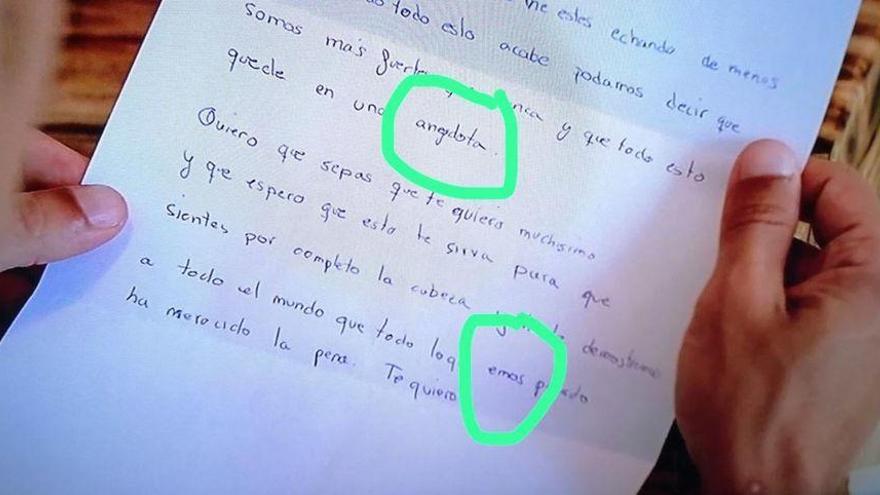 me estes echando de menos
todo esto acabe podamos decir que
somos más fuertes y que todo esto
quede en una angdota.
Quiero que sepas que te quiero muchisimo
y que espero que esto te sirva para que
sientes por completo la cabeza demostremos
a todo el mundo que todo loque emos pasado
ha merecido la pena. Te quiero